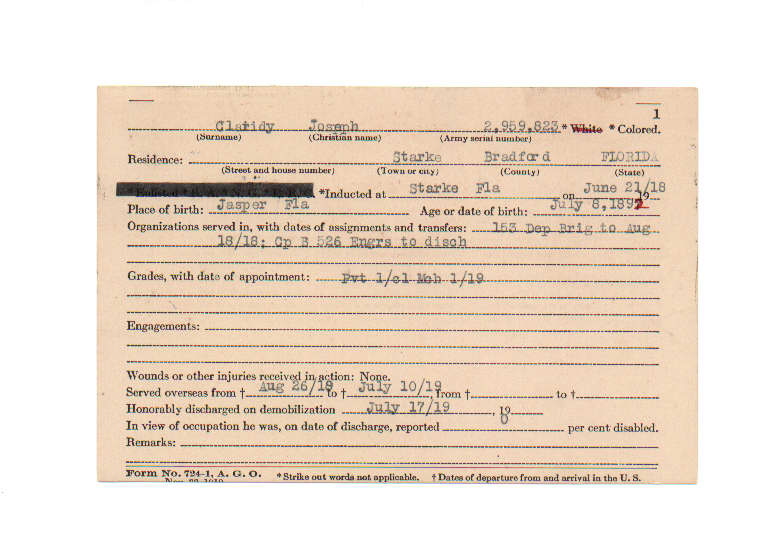 1
Claridy Joseph 2,959,623 * White * Colored.
(Surname) (Christian name) (Army serial number)
Residence: Starke Bradford FLORIDA
(Street and house number) (Town or city) (County) (State)
*Inducted at Starke Fla on June 21/18 19
Place of birth: Jasper Fla Age or date of birth: July 8, 1892
Organizations served in, with dates of assignments and transfers: 153 Dep Brig to Aug
18/18; Cp B 526 Engrs to disch
Grades, with date of appointment: Pvt 1/cl Mch 1/19
Engagements:
Wounds or other injuries received in action: None.
Served overseas from † Aug 26/18 to † July 10/19, from † to †
Honorably discharged on demobilization July 17/19, 19
0
In view of occupation he was, on date of discharge, reported per cent disabled.
Remarks:
Form No. 724-1, A. G. O. *Strike out words not applicable. † Dates of departure from and arrival in the U. S.